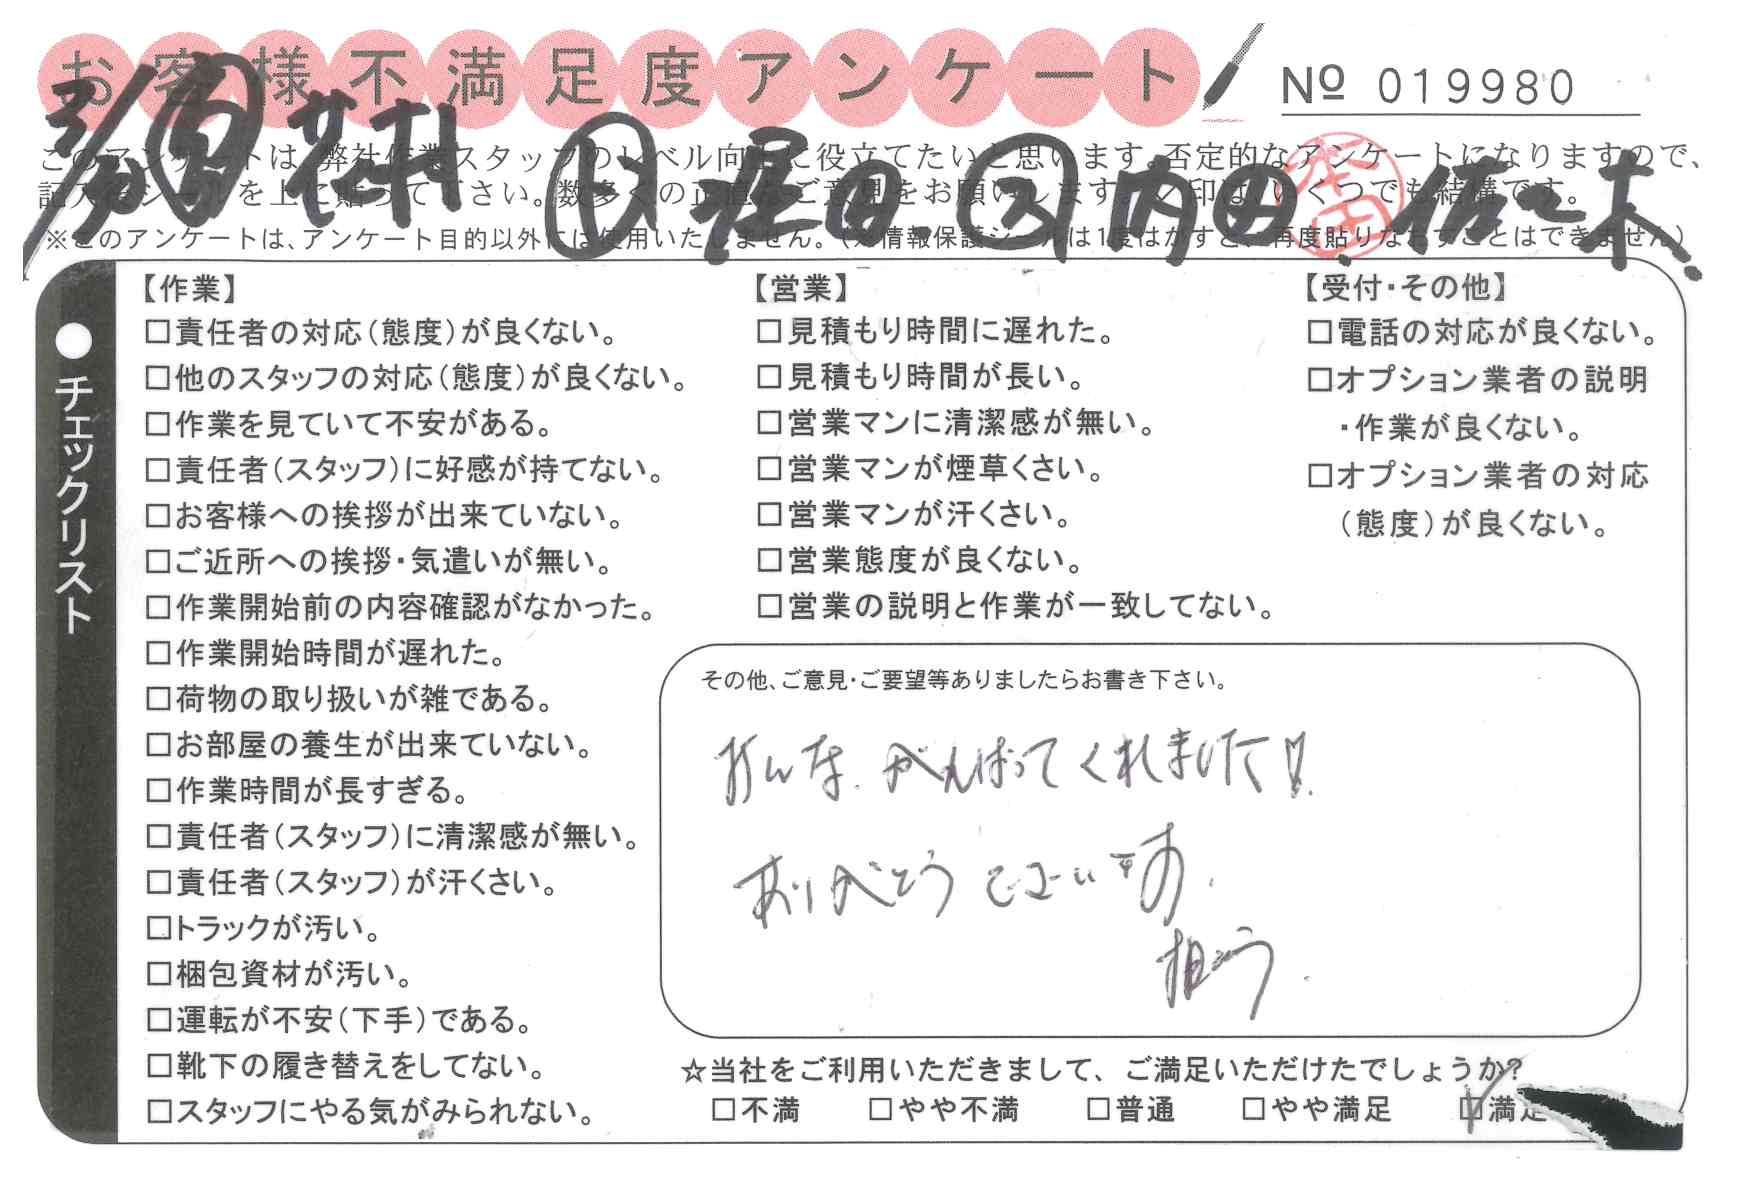 お客様不満足度アンケート
№ 019980
3/30 営 花村 ① 堀田 ② 内田 佐々木
本田
このアンケートは、弊社作業スタッフのレベル向上に役立てたいと思います。否定的なアンケートになりますので、
記入後シールを上に貼って下さい。数多くの正直なご意見をお願いします。✓印は、いくつでも結構です。
※このアンケートは、アンケート目的以外には使用いたしません。(※情報保護シールは1度はがすと、再度貼りなおすことはできません)
●チェックリスト
【作業】
□責任者の対応(態度)が良くない。
□他のスタッフの対応(態度)が良くない。
□作業を見ていて不安がある。
□責任者(スタッフ)に好感が持てない。
□お客様への挨拶が出来ていない。
□ご近所への挨拶・気遣いが無い。
□作業開始前の内容確認がなかった。
□作業開始時間が遅れた。
□荷物の取り扱いが雑である。
□お部屋の養生が出来ていない。
□作業時間が長すぎる。
□責任者(スタッフ)に清潔感が無い。
□責任者(スタッフ)が汗くさい。
□トラックが汚い。
□梱包資材が汚い。
□運転が不安(下手)である。
□靴下の履き替えをしてない。
□スタッフにやる気がみられない。
【営業】
□見積もり時間に遅れた。
□見積もり時間が長い。
□営業マンに清潔感が無い。
□営業マンが煙草くさい。
□営業マンが汗くさい。
□営業態度が良くない。
□営業の説明と作業が一致してない。
【受付・その他】
□電話の対応が良くない。
□オプション業者の説明
・作業が良くない。
□オプション業者の対応
(態度)が良くない。
その他、ご意見・ご要望等ありましたらお書き下さい。
みんな、がんばってくれました!!
ありがとうございます。
☆当社をご利用いただきまして、ご満足いただけたでしょうか?
□不満 □やや不満 □普通 □やや満足 ☑満足